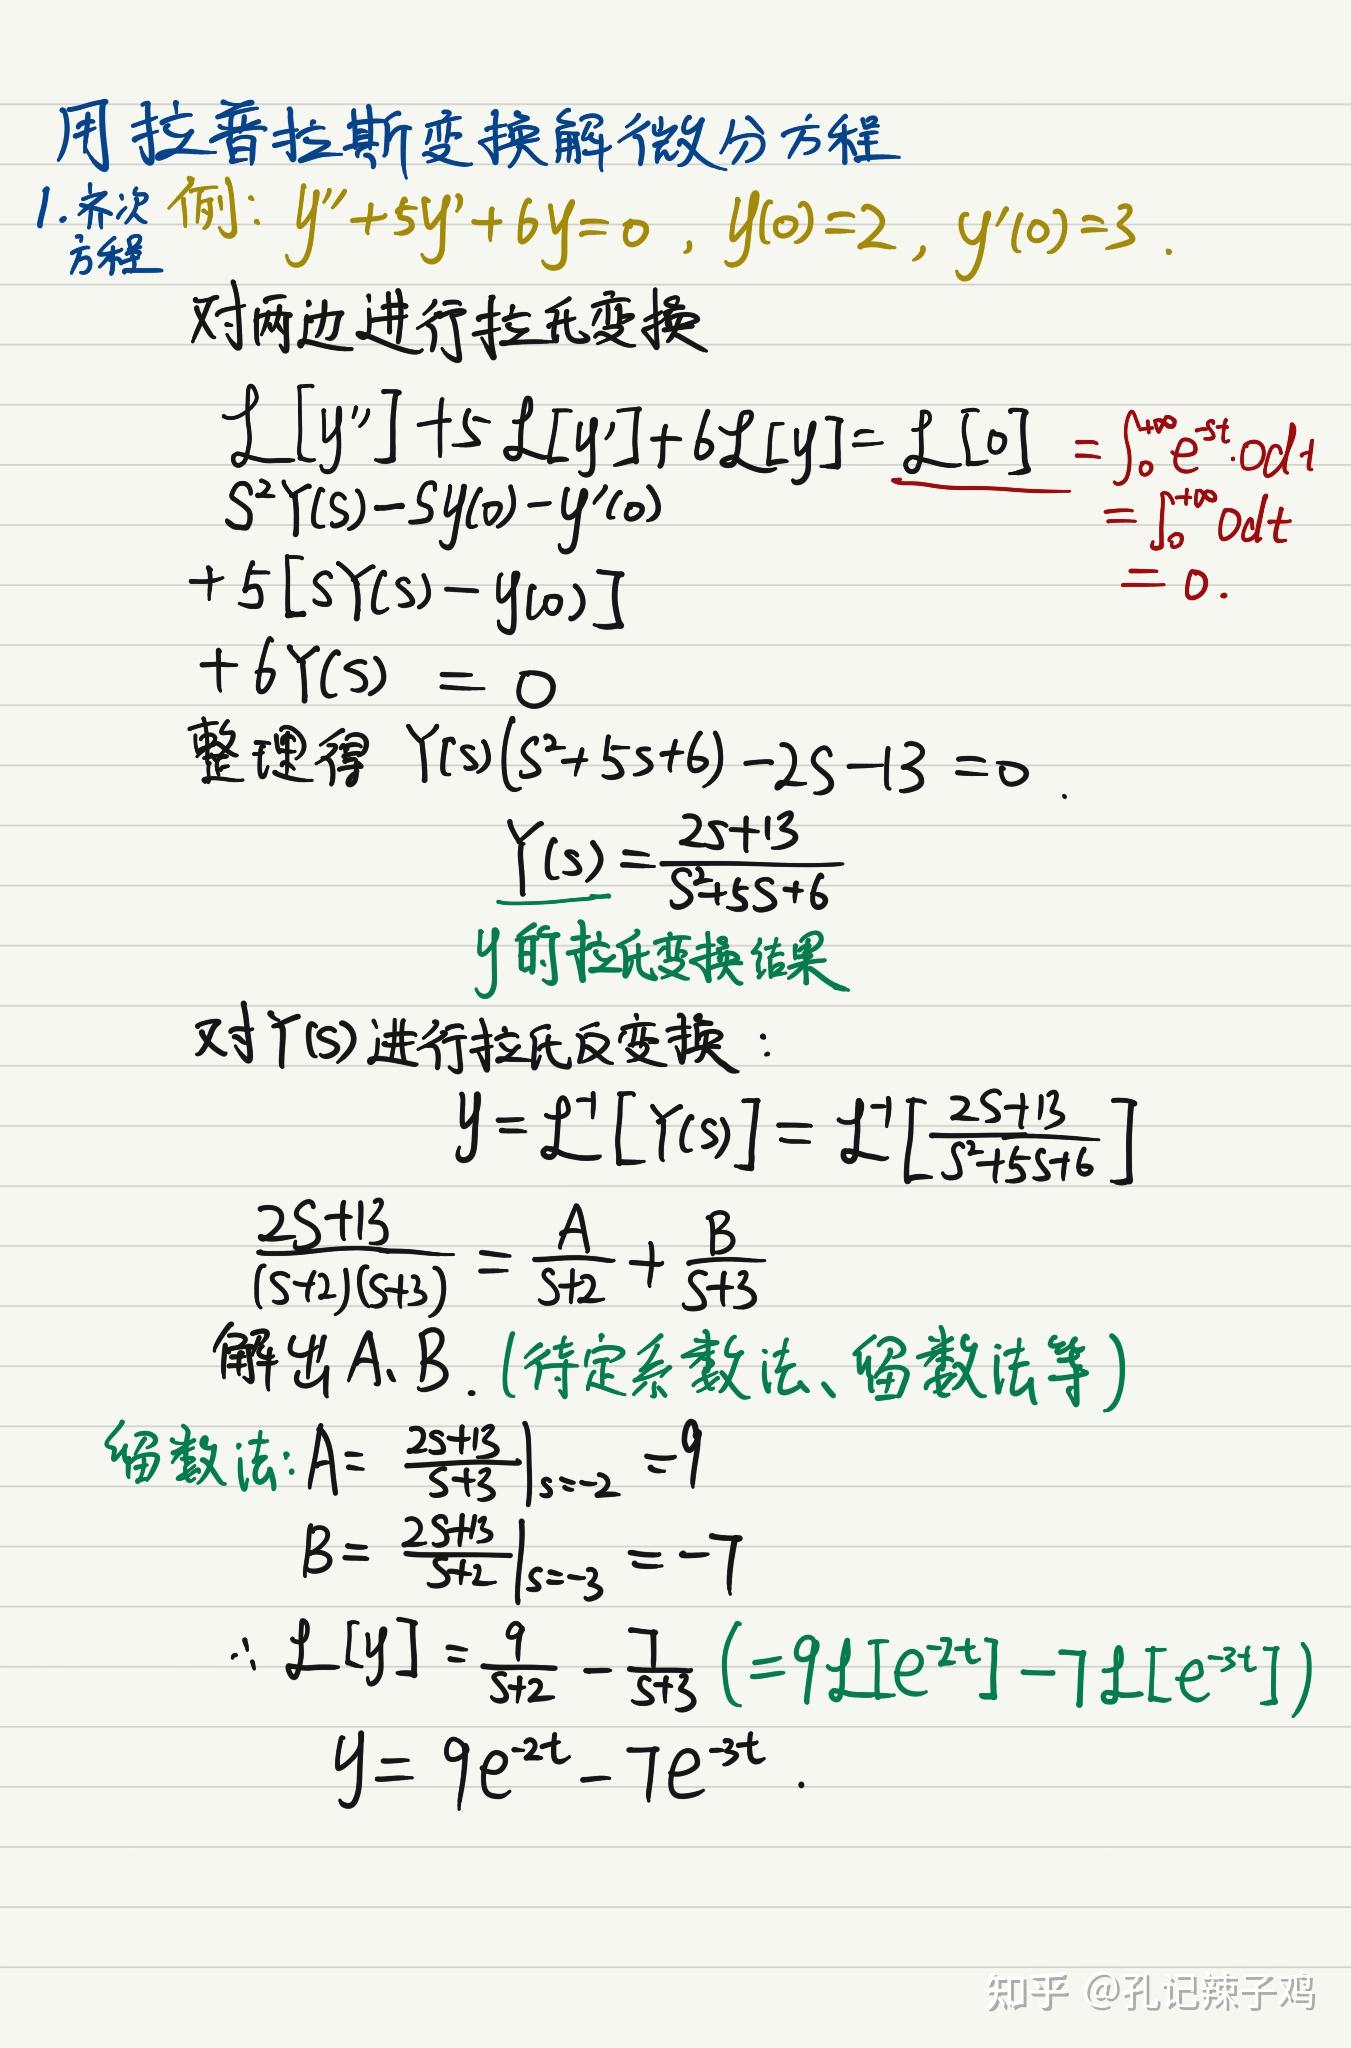 用拉普拉斯变换解微分方程
1. 齐次方程 例: y″+5y′+6y=0 , y(0)=2, y′(0)=3 .
对两边进行拉氏变换
ℒ[y″]+5ℒ[y′]+6ℒ[y]=ℒ[0] =∫₀^{+∞} e^{-st}·0dt
=∫₀^{+∞} 0dt
=0.
S²Y(S)-Sy(0)-y′(0)
+5[SY(S)-y(0)]
+6Y(S) = 0
整理得 Y(S)(S²+5S+6)-2S-13=0 .
Y(S)=\frac{2S+13}{S²+5S+6}
y的拉氏变换结果
对Y(S)进行拉氏反变换:
y=ℒ^{-1}[Y(S)]=ℒ^{-1}[\frac{2S+13}{S²+5S+6}]
\frac{2S+13}{(S+2)(S+3)}=\frac{A}{S+2}+\frac{B}{S+3}
解出A、B. (待定系数法、留数法等)
留数法: A=\frac{2S+13}{S+3}|_{S=-2}=9
B=\frac{2S+13}{S+2}|_{S=-3}=-7
∴ ℒ[y]=\frac{9}{S+2}-\frac{7}{S+3} (=9ℒ[e^{-2t}]-7ℒ[e^{-3t}])
y=9e^{-2t}-7e^{-3t} .
知乎 @孔记辣子鸡